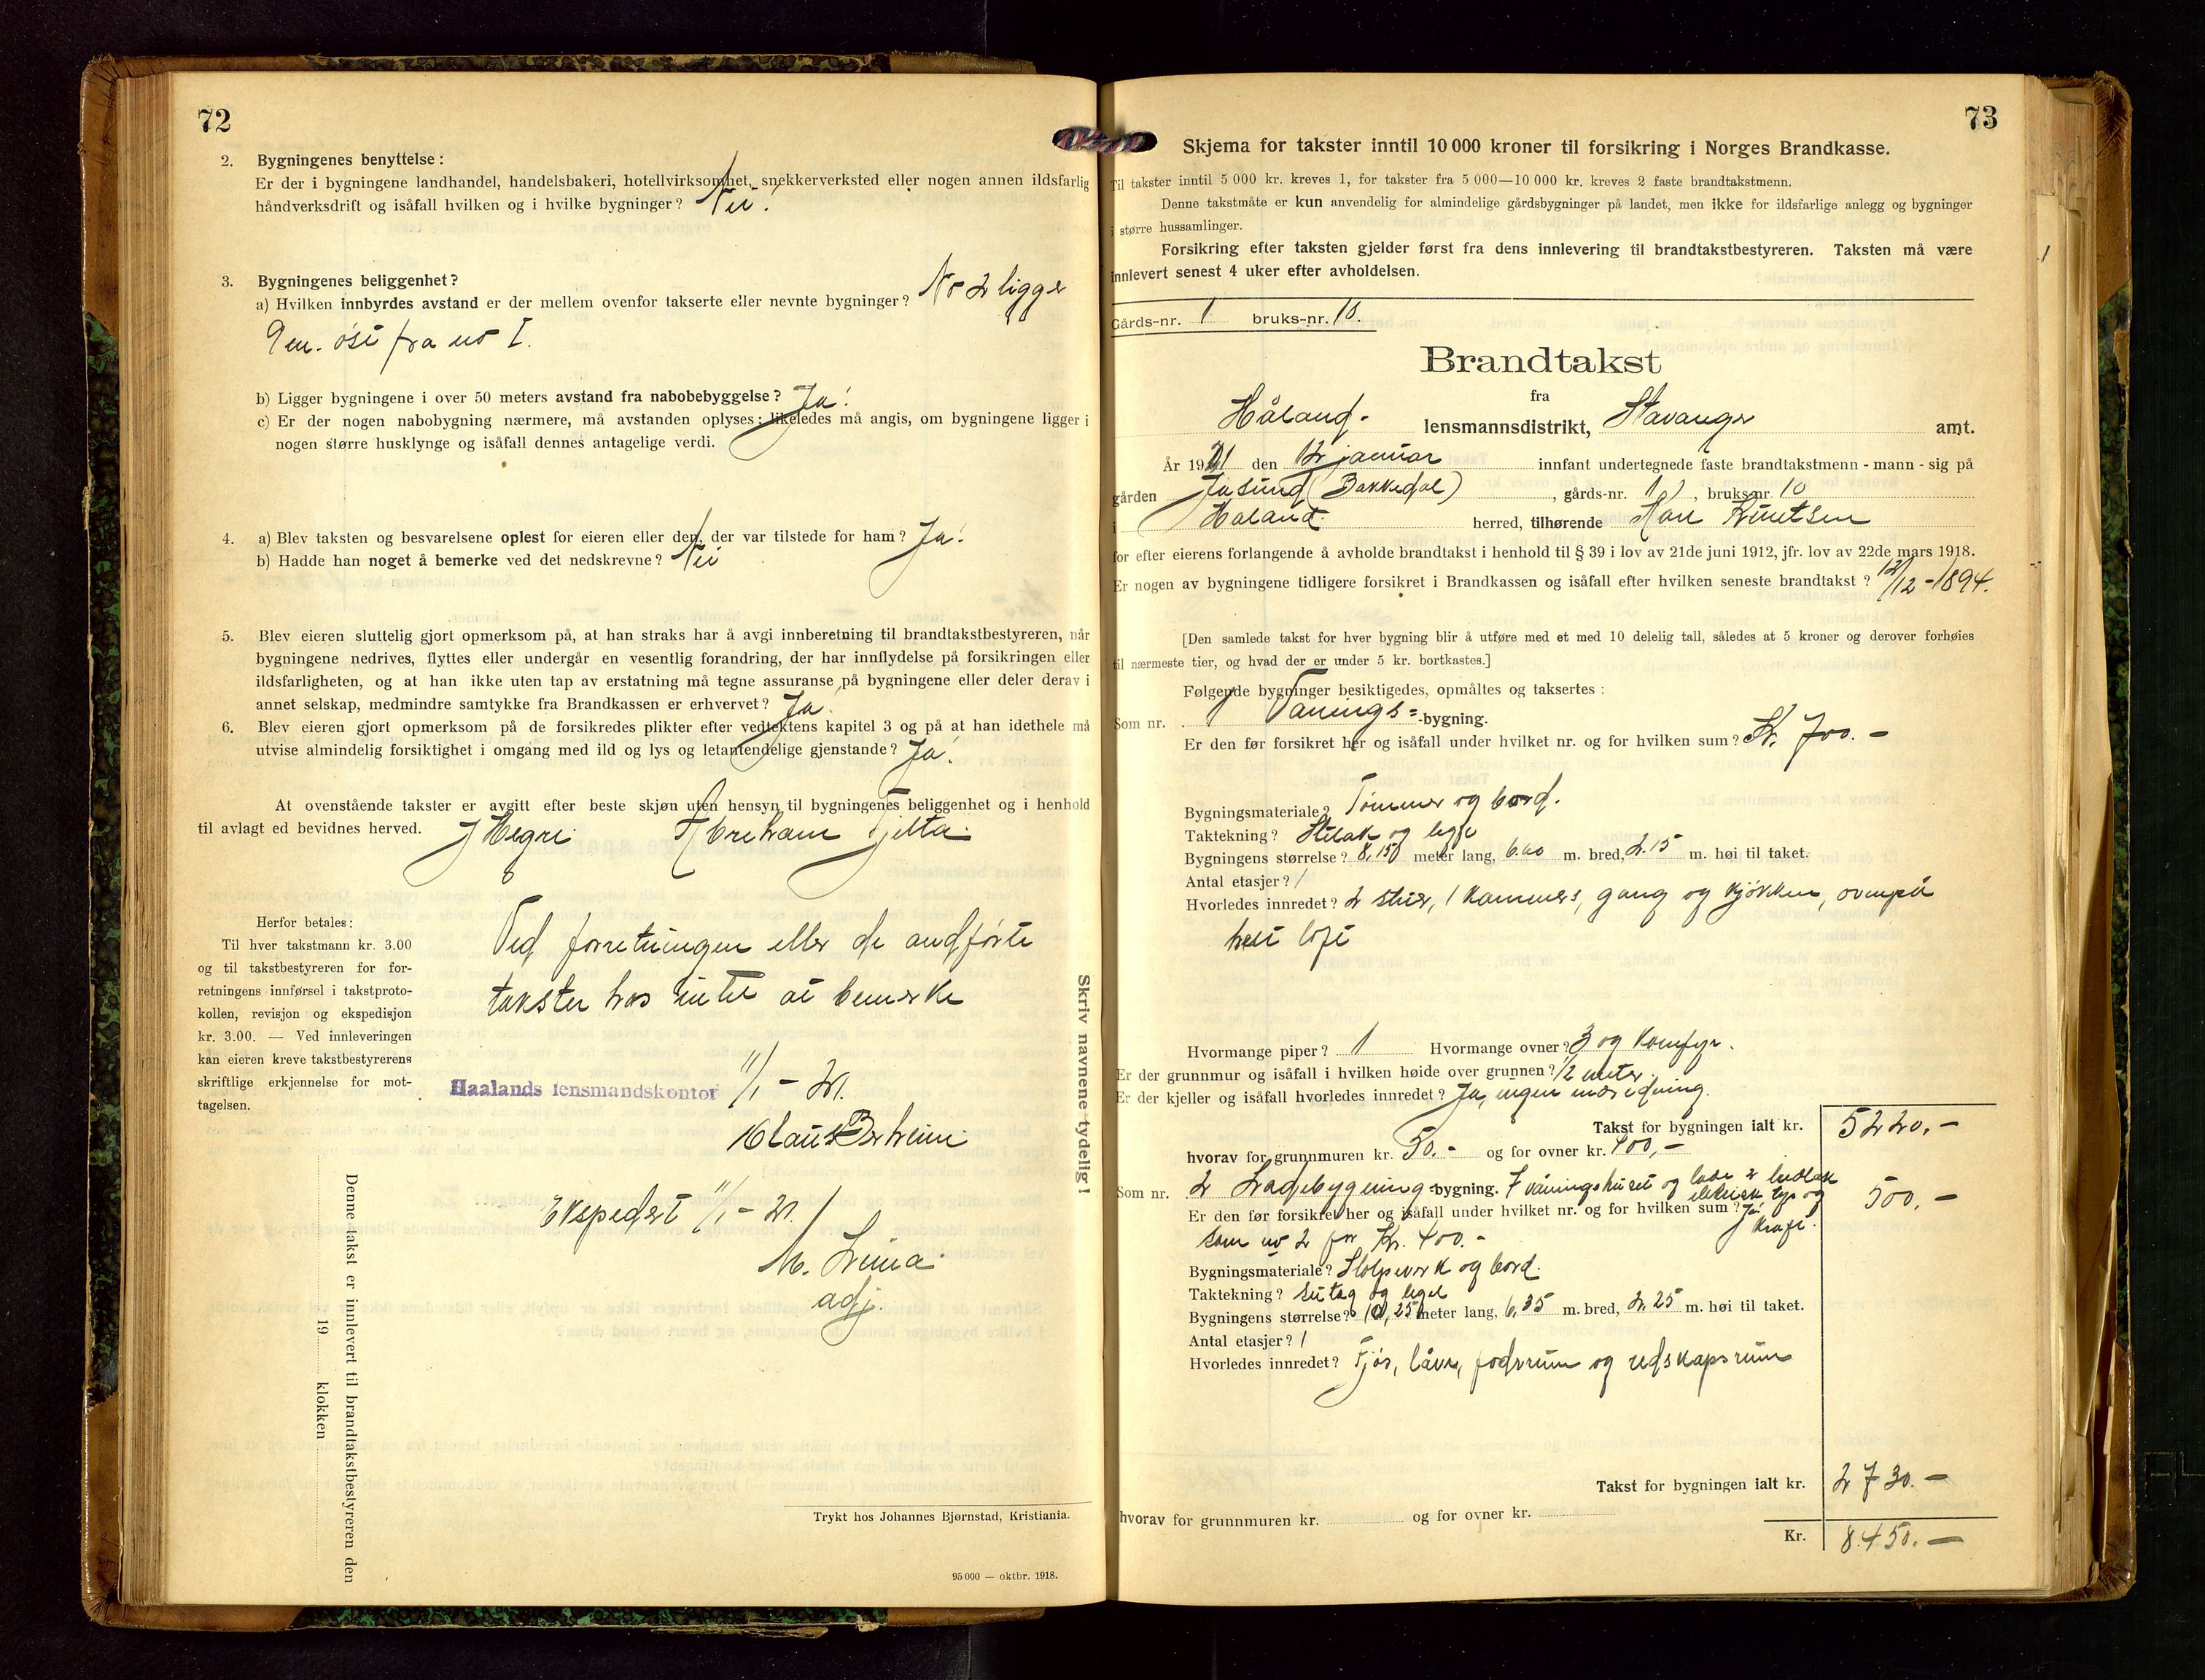 72
2. Bygningenes benyttelse:
Er der i bygningene landhandel, handelsbakeri, hotellvirksomhet, snekkerverksted eller nogen annen ildsfarlig
håndverksdrift og isåfall hvilken og i hvilke bygninger? Nei!
3. Bygningenes beliggenhet?
a) Hvilken innbyrdes avstand er der mellem ovenfor takserte eller nevnte bygninger? No 2 ligger
9 m. øst fra no I.
b) Ligger bygningene i over 50 meters avstand fra nabobebyggelse? Ja!
c) Er der nogen nabobygning nærmere, må avstanden oplyses; likeledes må angis, om bygningene ligger i
nogen større husklynge og isåfall dennes antagelige verdi.
4. a) Blev taksten og besvarelsene oplest for eieren eller den, der var tilstede for ham? Ja!
b) Hadde han noget å bemerke ved det nedskrevne? Nei
5. Blev eieren sluttelig gjort opmerksom på, at han straks har å avgi innberetning til brandtakstbestyreren, når
bygningene nedrives, flyttes eller undergår en vesentlig forandring, der har innflydelse på forsikringen eller
ildsfarligheten, og at han ikke uten tap av erstatning må tegne assuranse på bygningene eller deler derav i
annet selskap, medmindre samtykke fra Brandkassen er erhvervet? Ja!
6. Blev eieren gjort opmerksom på de forsikredes plikter efter vedtektens kapitel 3 og på at han idethele må
utvise almindelig forsiktighet i omgang med ild og lys og letantendelige gjenstande? Ja!
At ovenstående takster er avgitt efter beste skjøn uten hensyn til bygningenes beliggenhet og i henhold
til avlagt ed bevidnes herved. J Hegre. Abraham Tjelta.
Herfor betales:
Til hver takstmann kr. 3.00
og til takstbestyreren for for-
retningens innførsel i takstproto-
kollen, revisjon og ekspedisjon
kr. 3.00. — Ved innleveringen
kan eieren kreve takstbestyrerens
skriftlige erkjennelse for mot-
tagelsen.
Ved forretningen eller de andførte
takster has intet at bemerke
Haalands lensmandskontor 11/1 - 21.
Klaus Berheim
Ekspedert 11/1 - 21.
M.
adj.
Denne takst er innlevert til brandtakstbestyreren den
19 klokken
Skriv navnene tydelig!
Trykt hos Johannes Bjørnstad, Kristiania.
95 000 — oktbr. 1918.
73
Skjema for takster inntil 10 000 kroner til forsikring i Norges Brandkasse.
Til takster inntil 5 000 kr. kreves 1, for takster fra 5 000—10 000 kr. kreves 2 faste brandtakstmenn.
Denne takstmåte er kun anvendelig for almindelige gårdsbygninger på landet, men ikke for ildsfarlige anlegg og bygninger
i større hussamlinger.
Forsikring efter taksten gjelder først fra dens innlevering til brandtakstbestyreren. Taksten må være
innlevert senest 4 uker efter avholdelsen.
Gårds-nr. 1 bruks-nr. 10.
Brandtakst
fra
Håland. lensmannsdistrikt, Stavanger amt.
År 1921 den 12 januar innfant undertegnede faste brandtakstmenn - mann - sig på
gården Jasund (Bakkedal), gårds-nr. 1, bruks-nr. 10
i Håland. herred, tilhørende Knutsen
for efter eierens forlangende å avholde brandtakst i henhold til § 39 i lov av 21de juni 1912, jfr. lov av 22de mars 1918.
Er nogen av bygningene tidligere forsikret i Brandkassen og isåfall efter hvilken seneste brandtakst? 12/12 - 1894.
[Den samlede takst for hver bygning blir å utføre med et med 10 delelig tall, således at 5 kroner og derover forhøies
til nærmeste tier, og hvad der er under 5 kr. bortkastes.]
Følgende bygninger besiktigedes, opmåltes og taksertes:
Som nr. 1 Vånings=-bygning.
Er den før forsikret her og isåfall under hvilket nr. og for hvilken sum? Kr. 700. -
Bygningsmateriale? Tømmer og bord.
Taktekning? og
Bygningens størrelse? 8,150 meter lang, 6.00 m. bred, 2.15 m. høi til taket.
Antal etasjer? 1
Hvorledes innredet? 2 stuer, 1 kammers, gang og kjøkken, ovenpå
helt loft
Hvormange piper? 1 Hvormange ovner? 3 og komfyr.
Er der grunnmur og isåfall i hvilken høide over grunnen? 1/2 meter.
Er der kjeller og isåfall hvorledes innredet? Ja, ingen indredning.
Takst for bygningen ialt kr. 5220. -
hvorav for grunnmuren kr. 50. - og for ovner kr. 400, -
Som nr. 2 Ladebygning=-bygning. I våningshuset og lade er
elektrisk lys og 500. -
Er den før forsikret her og isåfall under hvilket nr. og for hvilken sum? Ja! kraft.
som no 2 for Kr. 400. -
Bygningsmateriale? Stolpeverk og bord.
Taktekning? og
Bygningens størrelse? 10,25 meter lang, 6,35 m. bred, 2.25 m. høi til taket.
Antal etasjer? 1
Hvorledes innredet? Fjøs, låve, fodrrum og redskapsrum
Takst for bygningen ialt kr. 2730. -
hvorav for grunnmuren kr. og for ovner kr.
Kr. 8450. -